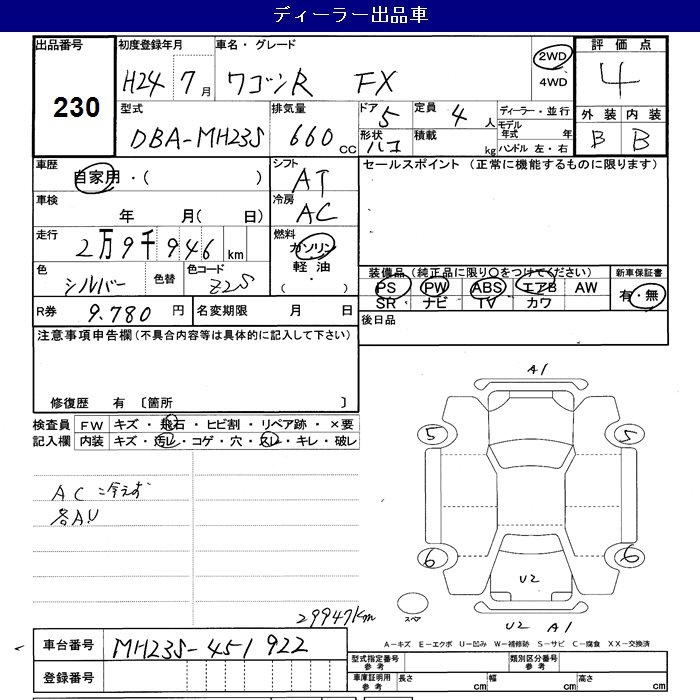 ディーラー出品車
出品番号 230
初度登録年月 H24 7月
車名・グレード ワゴンR FX
2WD
4WD
評価点 4
外装 内装
B B
型式 DBA-MH23S
排気量 660 cc
ドア 5
形状 ハコ
定員 4 人
積載 kg
ディーラー・並行
モデル年式 年
ハンドル 左・右
車歴 自家用・( )
シフト AT
セールスポイント (正常に機能するものに限ります)
車検 年 月( 日)
冷房 AC
走行 2万9千946 km
燃料 ガソリン
軽油
( ・ )
色 シルバー 色替 色コード Z2S
装備品 (純正品に限り○をつけてください) 新車保証書
PS PW ABS エアB AW 有・無
SR ナビ TV カワ
R券 9.780 円 名変期限 月 日
後日品
注意事項申告欄(不具合内容等は具体的に記入して下さい)
修復歴 有 〔箇所 〕
検査員 FW キズ・飛石・ヒビ割・リペア跡・×要
記入欄 内装 キズ・汚レ・コゲ・穴・スレ・キレ・破レ
AC冷えず
各A.U
A1
5 5
6 6
U2
スペア
U2 A1
29947Km
A-キズ E-エクボ U-凹み W-補修跡 S-サビ C-腐食 XX-交換済
車台番号 MH23S-451922
登録番号
型式指定番号 参考 類別区分番号 参考
車庫証明用 参考 長さ cm 幅 cm 高さ cm